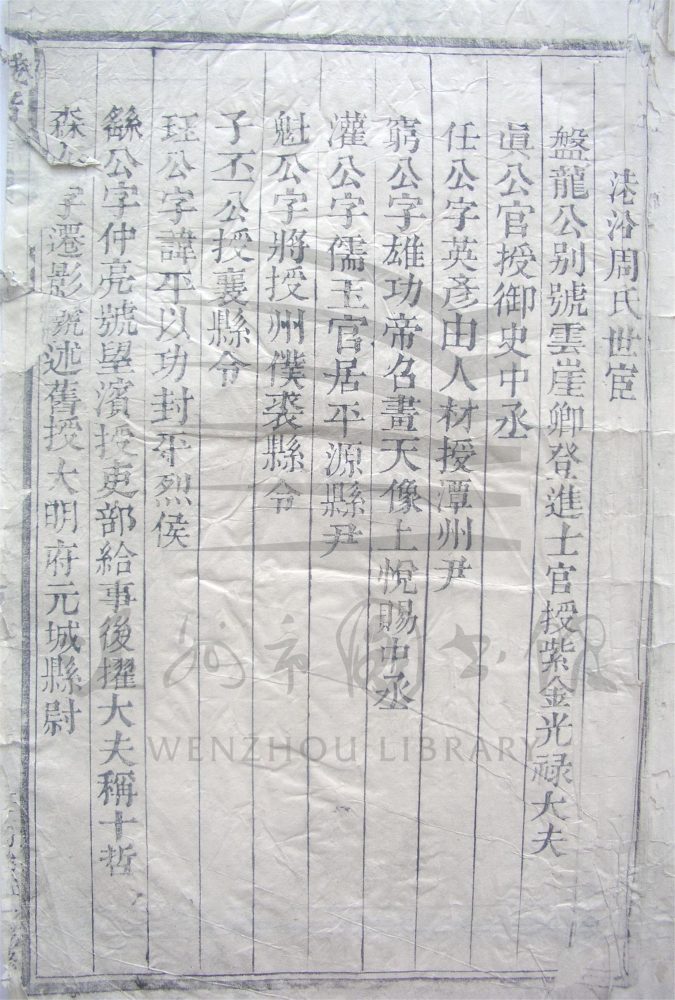 港浴周氏世宦
盤龍公别號雲崖卿登進士官授紫金光禄大夫
眞公官授御史中丞
任公字英彦由人材授潭州尹
窮公字雄功帝名畫天像上悅賜中丞
灌公字儒玉官居平源縣尹
魁公字將授州僕裘縣令
子丕公授襄縣令
珏公字諱平以功封平烈侯
繇公字仲亮號望濱授吏部給事後擢大夫稱十哲
森 字遷影號述舊授大明府元城縣尉
温州市圖書館
WENZHOU LIBRARY